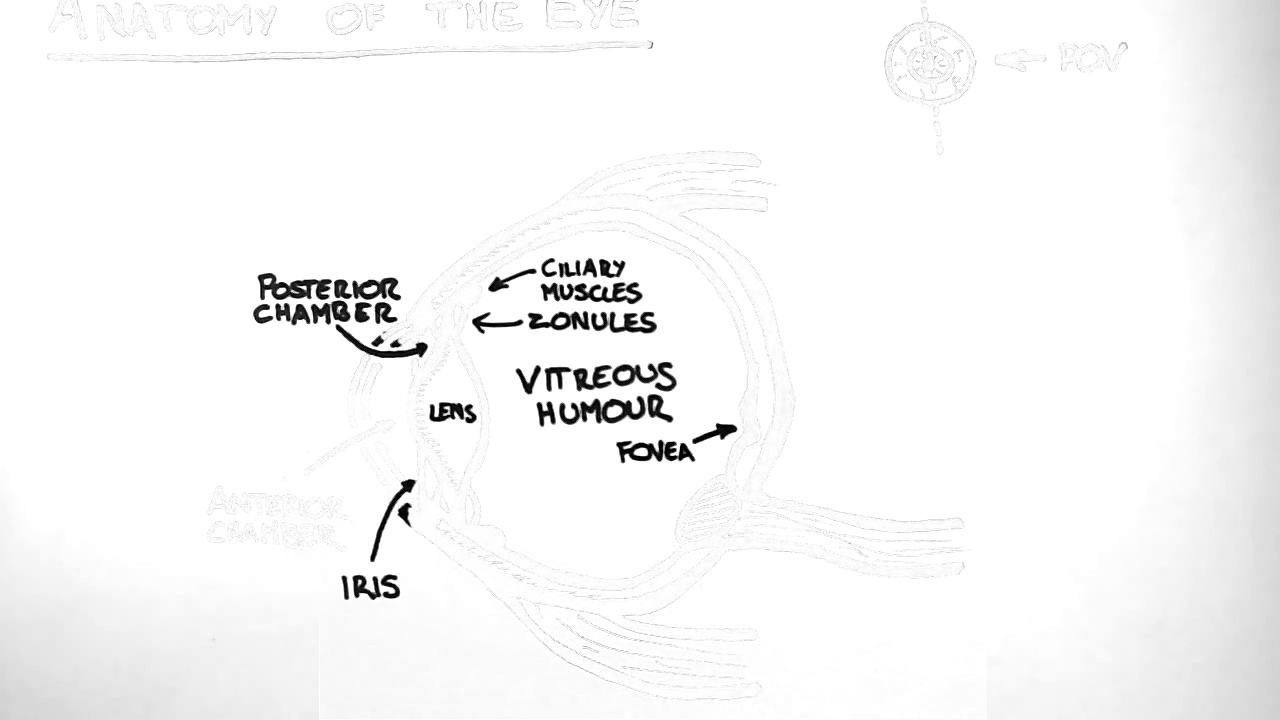 ANATOMY OF THE EYE
POV
POSTERIOR
CHAMBER
CILIARY
MUSCLES
ZONULES
VITREOUS
HUMOUR
LENS
FOVEA
ANTERIOR
CHAMBER
IRIS